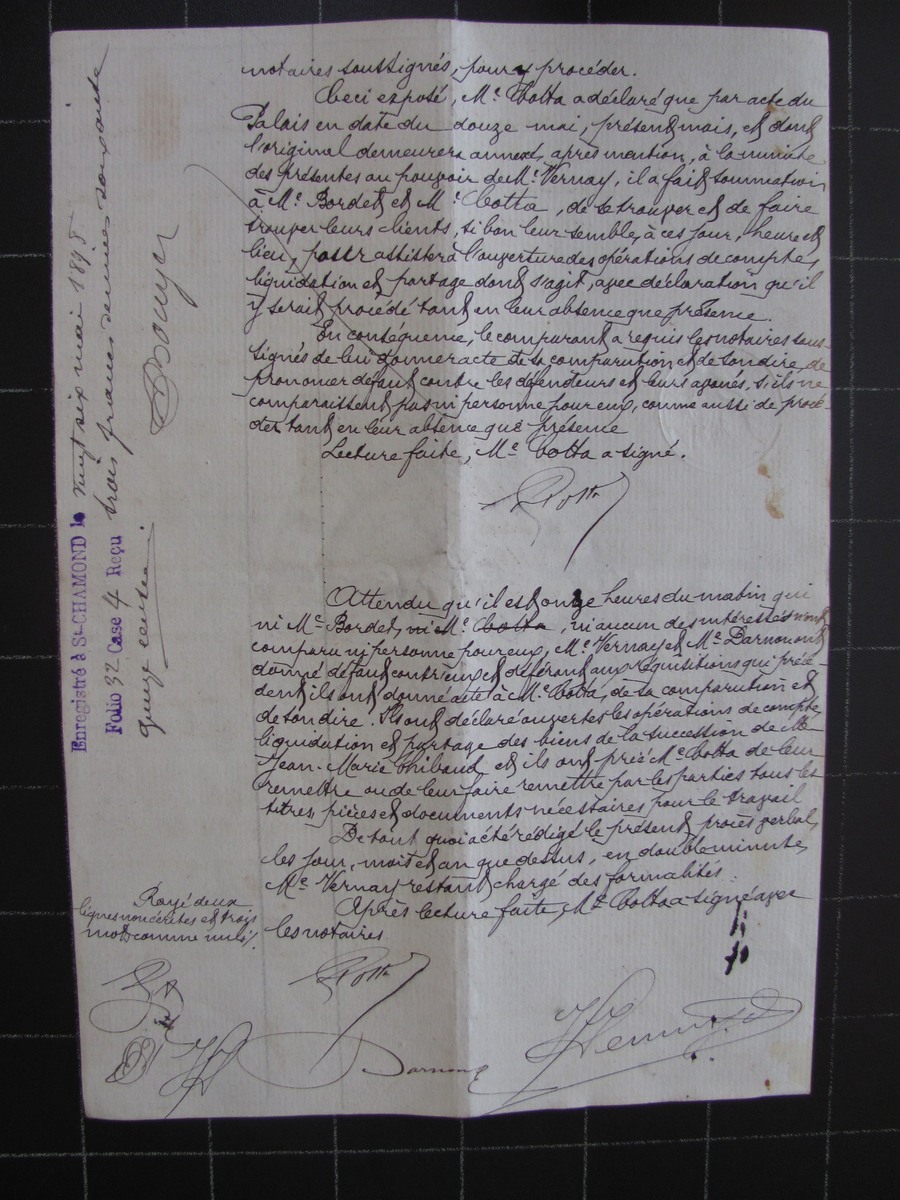 notaires soussignés, pour y procéder.
Ceci exposé, Me Cotta a déclaré que par acte du
Palais en date du douze mai, présent mois, et dont
l'original demeurera annexé, après mention, à la minute
des présentes au pouvoir de Me Vernay, il a fait sommation
à Me Bordet et Me Cotta, de se trouver et de faire
trouver leurs clients, si bon leur semble, à ces jour, heure et
lieu, pour assister à l'ouverture des opérations de compte,
liquidation et partage dont s'agit, avec déclaration qu'il
y serait procédé tant en leur absence que présence.
En conséquence, le comparant a requis les notaires sous-
signés de lui donner acte de sa comparution et de son dire, de
prononcer défaut contre les défendeurs et leurs avoués, s'ils ne
comparaissent pas ni personne pour eux, comme aussi de procé-
der tant en leur absence que présence
Lecture faite, Me Cotta a signé.
Cotta
Attendu qu'il est onze heures du matin qui
ni Me Bordet, ni Me Cotta, ni aucun des intéressés n'ont
comparu ni personne pour eux, Me Vernay et Me Darnon ont
donné défaut contr'eux et déférant aux réquisitions qui précè-
dent ils ont donné acte à Me Cotta, de sa comparution et
de son dire. Ils ont déclaré ouvertes les opérations de compte,
liquidation et partage des biens de la succession de Mr
Jean-Marie Thibaud et ils ont prié Me Cotta de leur
remettre ou de leur faire remettre par les parties tous les
titres, pièces et documents nécessaires pour le travail
De tout quoi a été rédigé le présent procès verbal,
les jour, mois et an que dessus, en double minute,
Me Vernay restant chargé des formalités.
Après lecture faite, Me Cotta a signé avec
les notaires
Rayé deux
lignes non écrites et trois
mots comme nuls
Cotta
Darnon
Vernay
Enregistré à St-CHAMOND le vingt six mai 1898
Folio 32 Case 4 Reçu trois francs décimes soixante
quinze centimes.